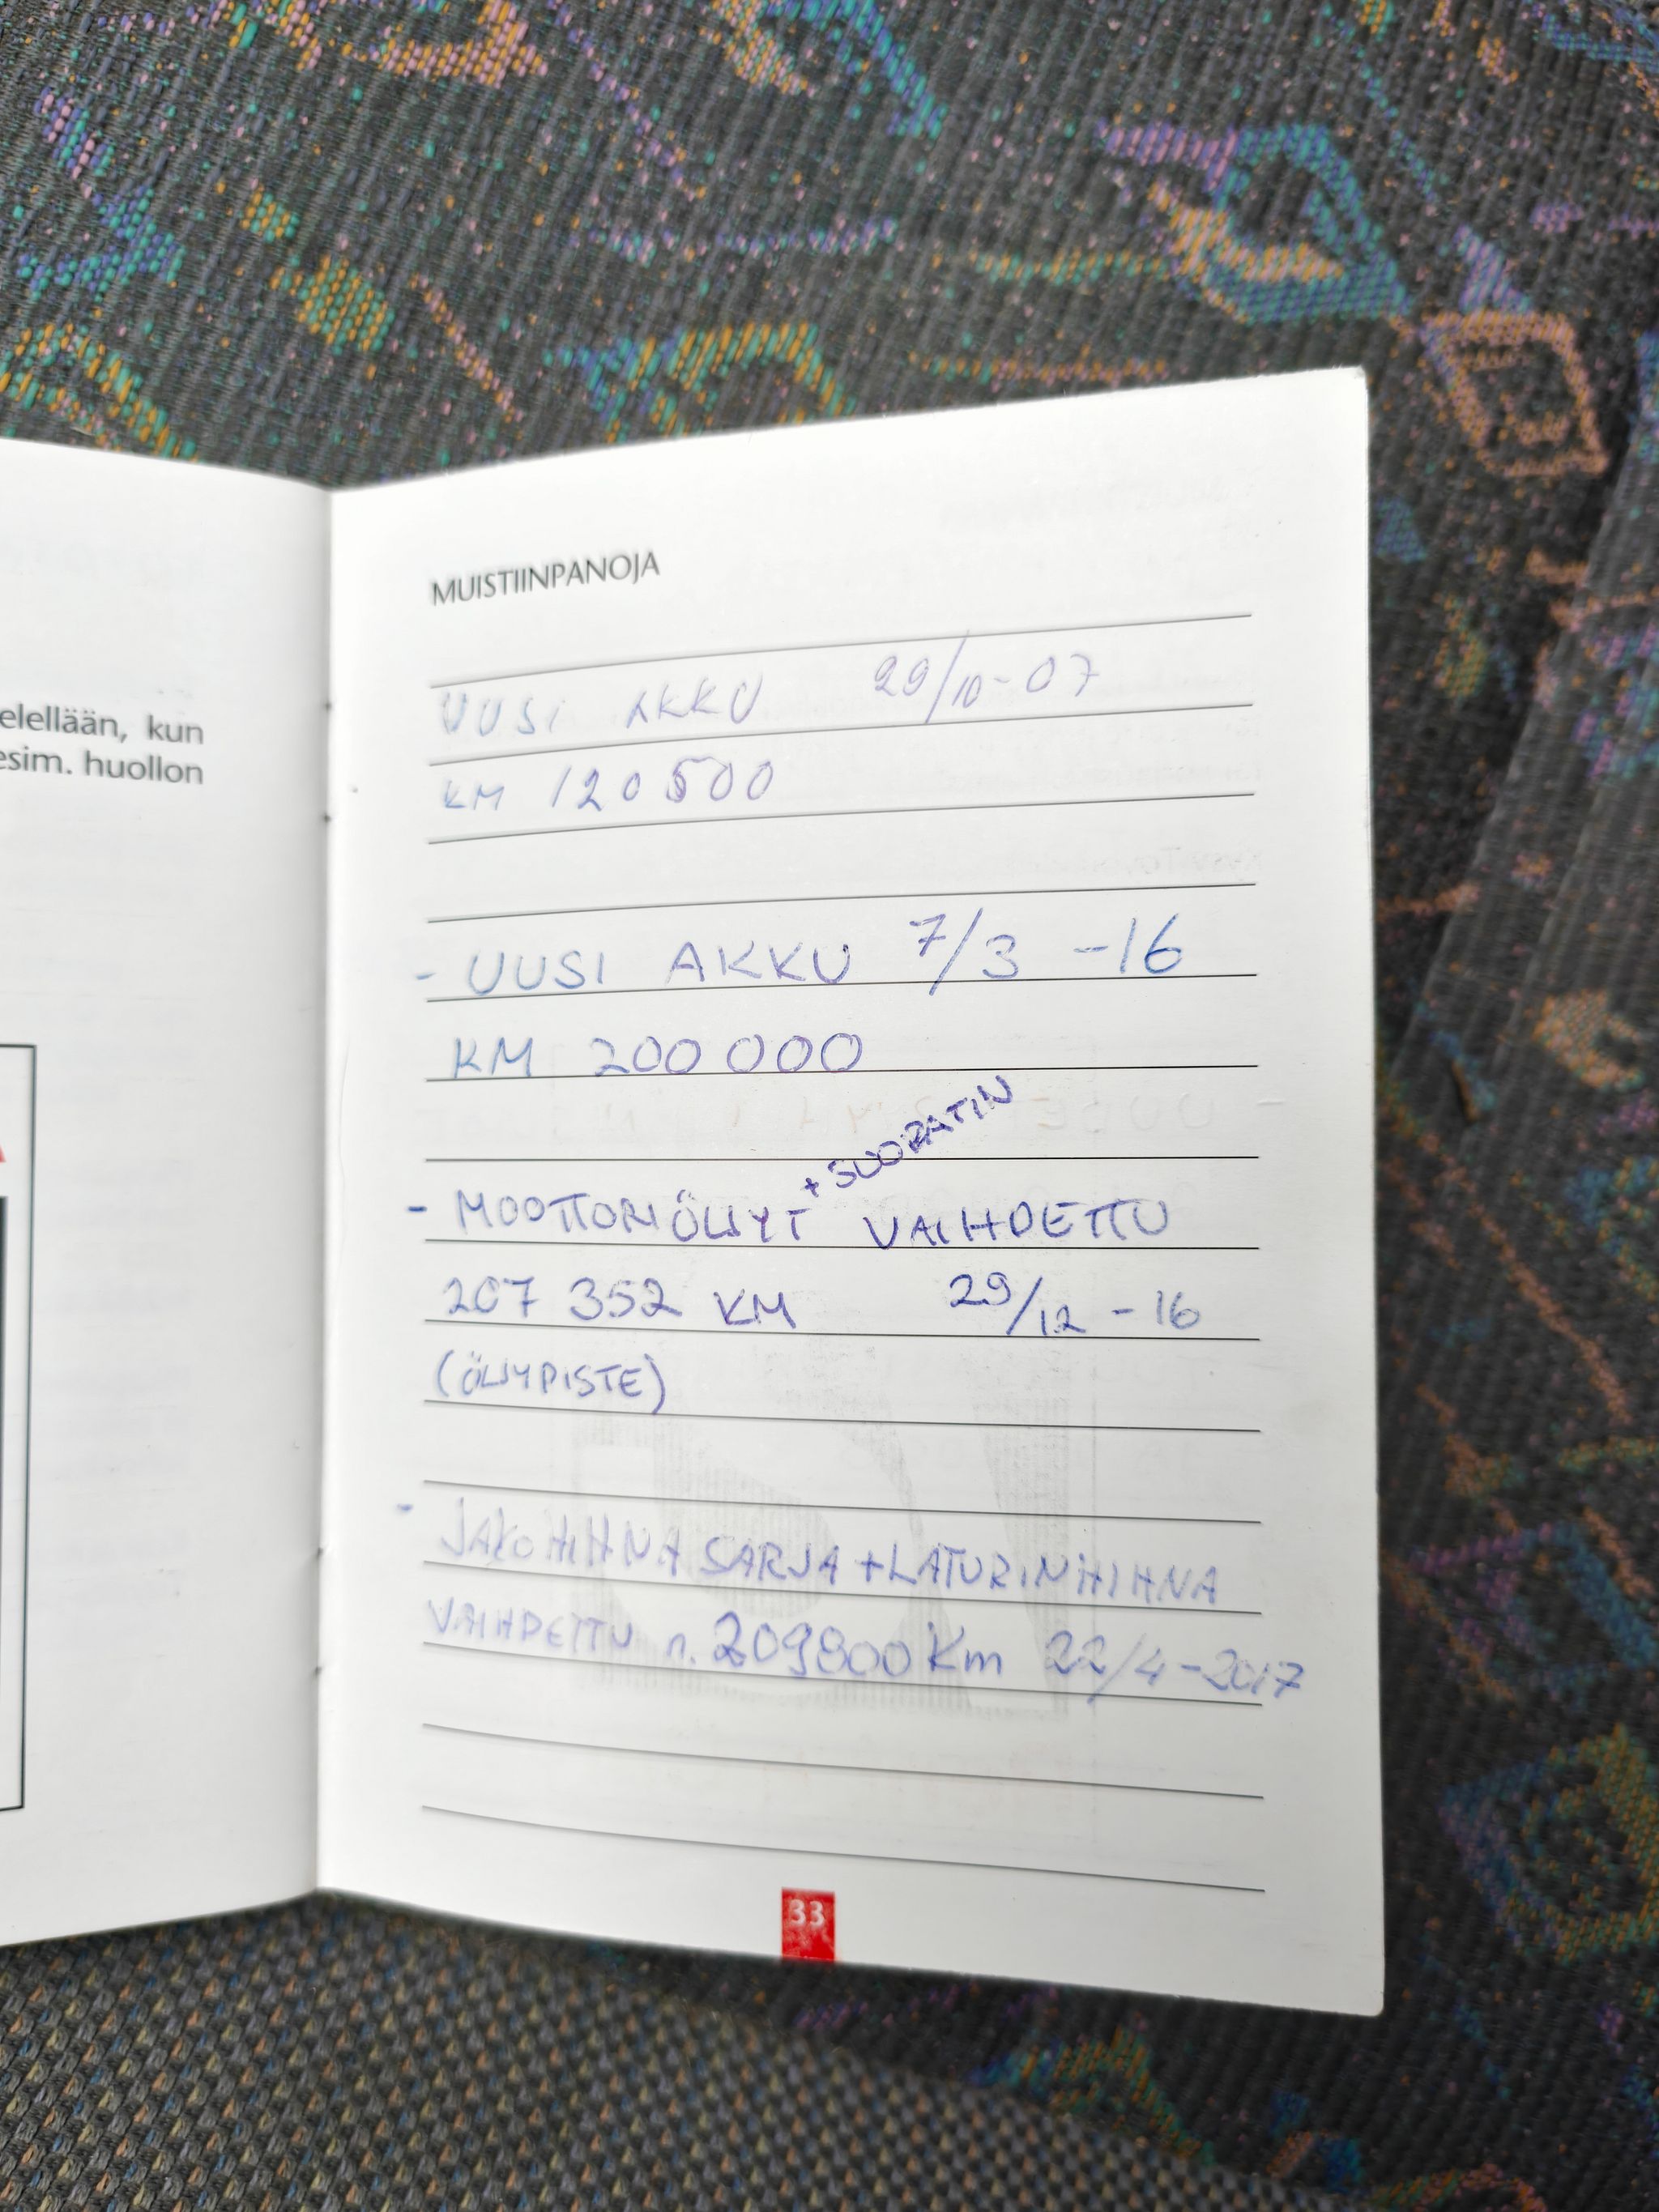 elellään, kun
esim. huollon
MUISTIINPANOJA
UUSI AKKU 29/10-07
KM 120500
- UUSI AKKU 7/3 -16
KM 200 000
+ SUODATIN
- MOOTTORIÖLJYT VAIHDETTU
207 352 KM 29/12 -16
(ÖLJYPISTE)
- JAKOHIHNA SARJA + LATURINHIHNA
VAIHDETTU n. 209800 Km 22/4-2017
33